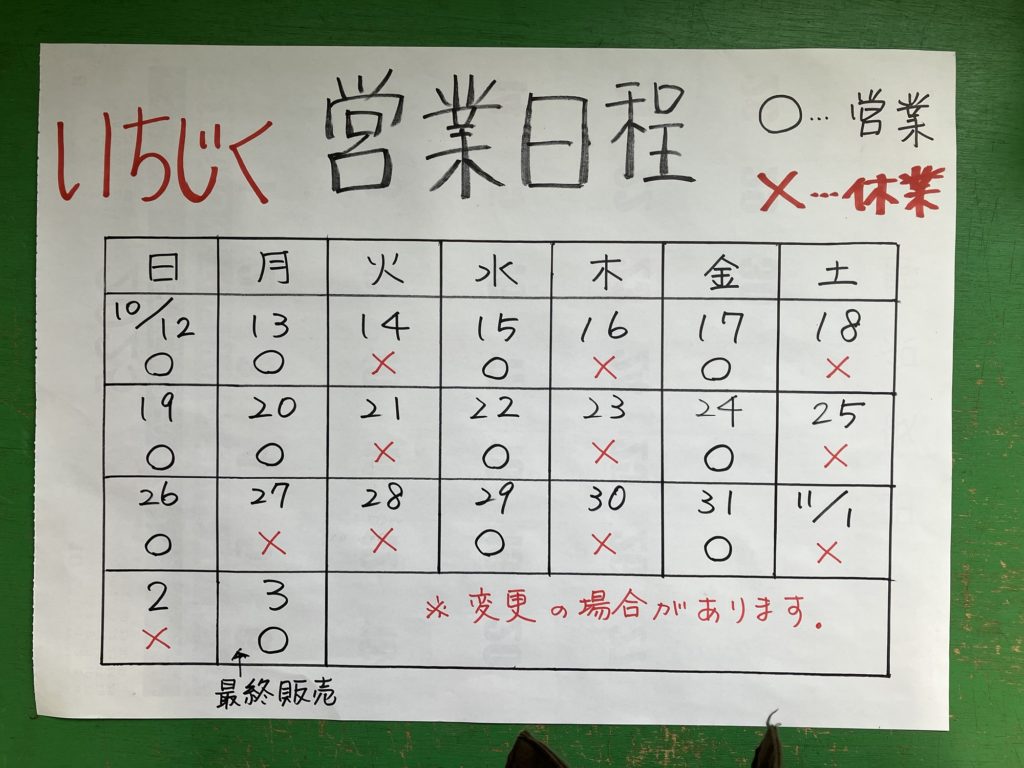 いちじく 営業日程
○…営業
×…休業
日 月 火 水 木 金 土
10/12 13 14 15 16 17 18
○ ○ × ○ × ○ ×
19 20 21 22 23 24 25
○ ○ × ○ × ○ ×
26 27 28 29 30 31 11/1
○ × × ○ × ○ ×
2 3
× ○
※変更の場合があります.
↑
最終販売